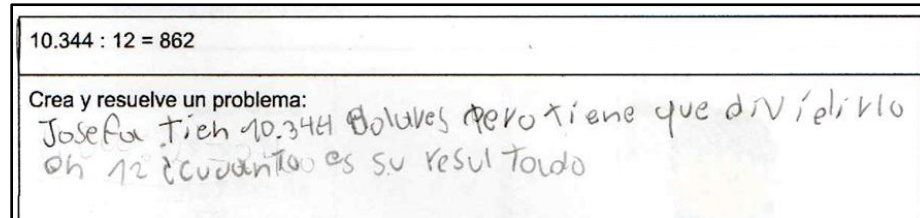 10.344 : 12 = 862
Crea y resuelve un problema:
Josefa tien 10.344 Dolares pero tiene que dividirlo
en 12 ¿cuuanto es su resultado